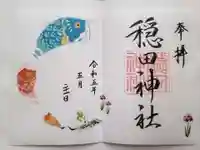 奉拝
穏田神社
令和五年
五月
三日